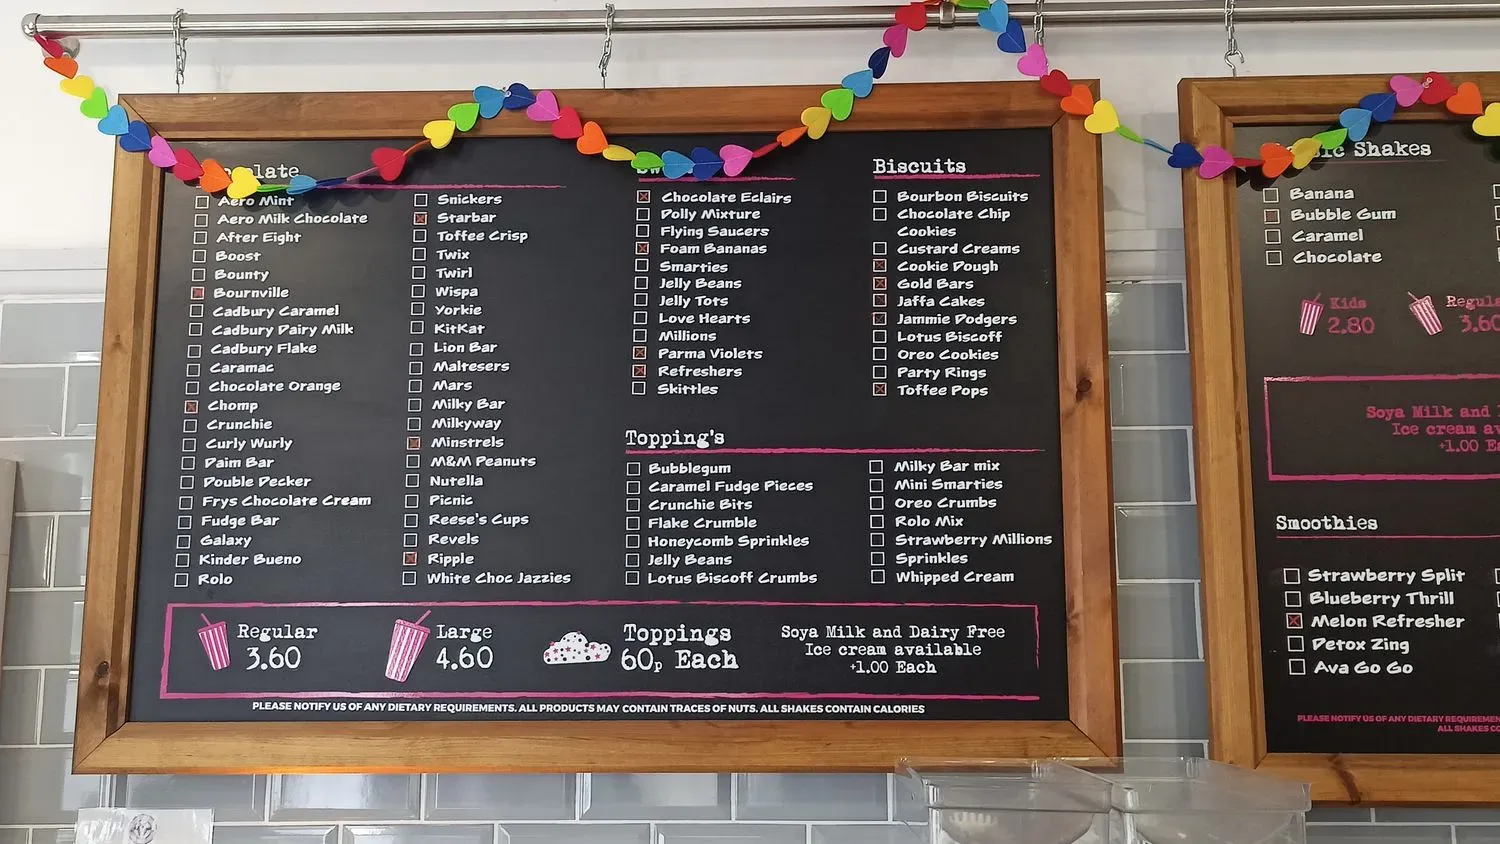 Snickers
Aero Mint
Aero Milk Chocolate
After Eight
Boost
Bounty
Bournville
Cadbury Caramel
Cadbury Dairy Milk
Cadbury Flake
Caramac
Chocolate Orange
Chomp
Crunchie
Curly Wurly
Daim Bar
Double Decker
Frys Chocolate Cream
Fudge Bar
Galaxy
Kinder Bueno
Rolo
Starbar
Toffee Crisp
Twix
Twirl
Wispa
Yorkie
KitKat
Lion Bar
Maltesers
Mars
Milky Bar
Milkyway
Minstrels
M&M Peanuts
Nutella
Picnic
Reese's Cups
Revels
Ripple
White Choc Jazzies
Chocolate Eclairs
Dolly Mixture
Flying Saucers
Foam Bananas
Smarties
Jelly Beans
Jelly Tots
Love Hearts
Millions
Parma Violets
Refreshers
Skittles
Biscuits
Bourbon Biscuits
Chocolate Chip
Cookies
Custard Creams
Cookie Dough
Gold Bars
Jaffa Cakes
Jammie Dodgers
Lotus Biscoff
Oreo Cookies
Party Rings
Toffee Pops
Topping's
Bubblegum
Caramel Fudge Pieces
Crunchie Bits
Flake Crumble
Honeycomb Sprinkles
Jelly Beans
Lotus Biscoff Crumbs
Milky Bar mix
Mini Smarties
Oreo Crumbs
Rolo Mix
Strawberry Millions
Sprinkles
Whipped Cream
Regular
3.60
Large
4.60
Toppings
60p Each
Soya Milk and Dairy Free
Ice cream available
+1.00 Each
PLEASE NOTIFY US OF ANY DIETARY REQUIREMENTS. ALL PRODUCTS MAY CONTAIN TRACES OF NUTS. ALL SHAKES CONTAIN CALORIES
Shakes
Banana
Bubble Gum
Caramel
Chocolate
Kids
2.80
Regula
3.60
Soya Milk and
Ice cream av
+1.00 Ea
Smoothies
Strawberry Split
Blueberry Thrill
Melon Refresher
Detox Zing
Ava Go Go
PLEASE NOTIFY US OF ANY DIETARY REQUIREMEN
ALL SHAKES CO